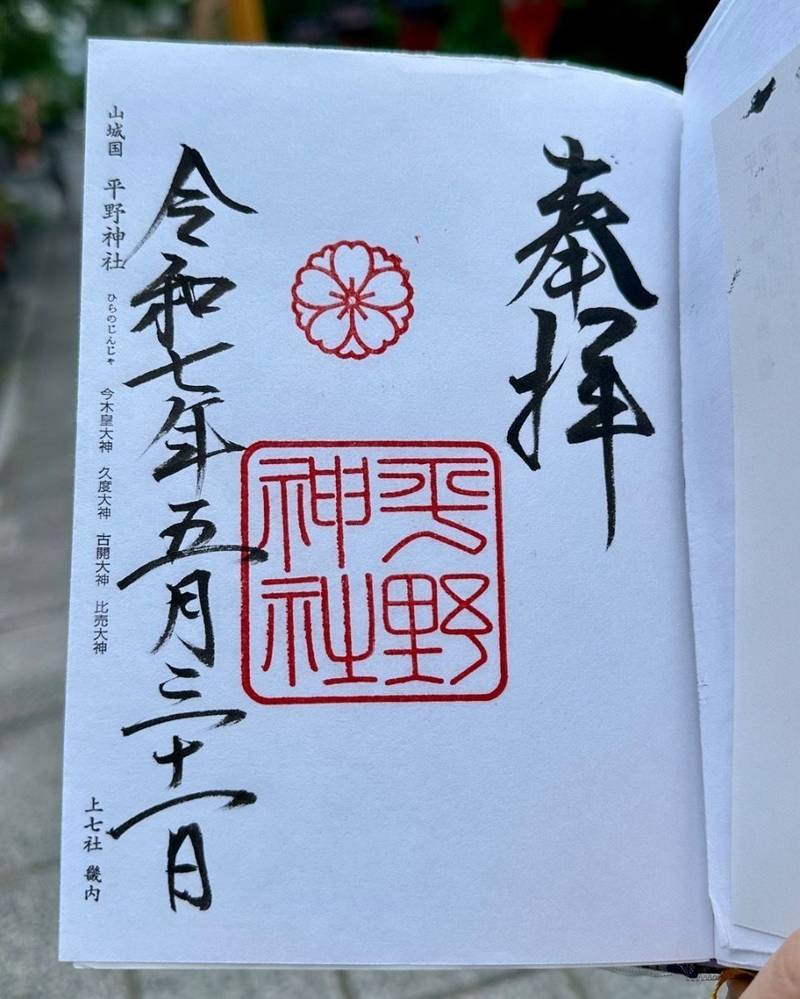 奉拝
平野
神社
令和七年五月三十一日
山城国 平野神社 ひらのじんじゃ 今木皇大神 久度大神 古開大神 比売大神
上七社 畿内